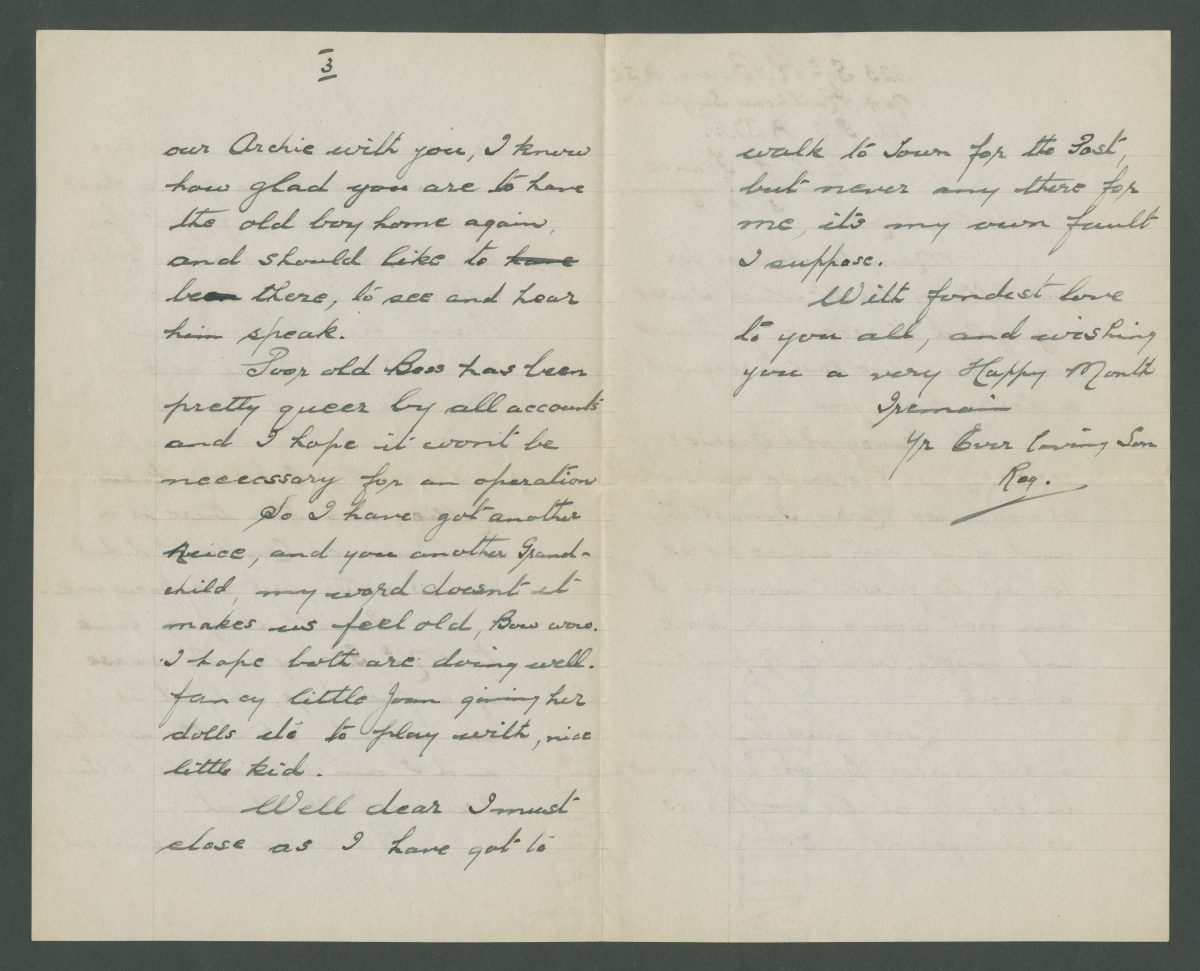 3
our Archie with you, I know
how glad you are to have
the old boy home again,
and should like to have
been there, to see and hear
him speak.
Poor old Boss has been
pretty queer by all accounts
and I hope it wont be
neccessary for an operation
So I have got another
Neice, and you another Grand-
child, my word doesnt it
makes us feel old, Bow wow.
I hope both are doing well.
fancy little Joan giving her
dolls etc to play with, nice
little kid.
Well dear I must
close as I have got to
walk to Town for the Post,
but never any there for
me, it's my own fault
I suppose.
With fondest love
to you all, and wishing
you a very Happy Month
I remain
Yr Ever loving Son
Reg.